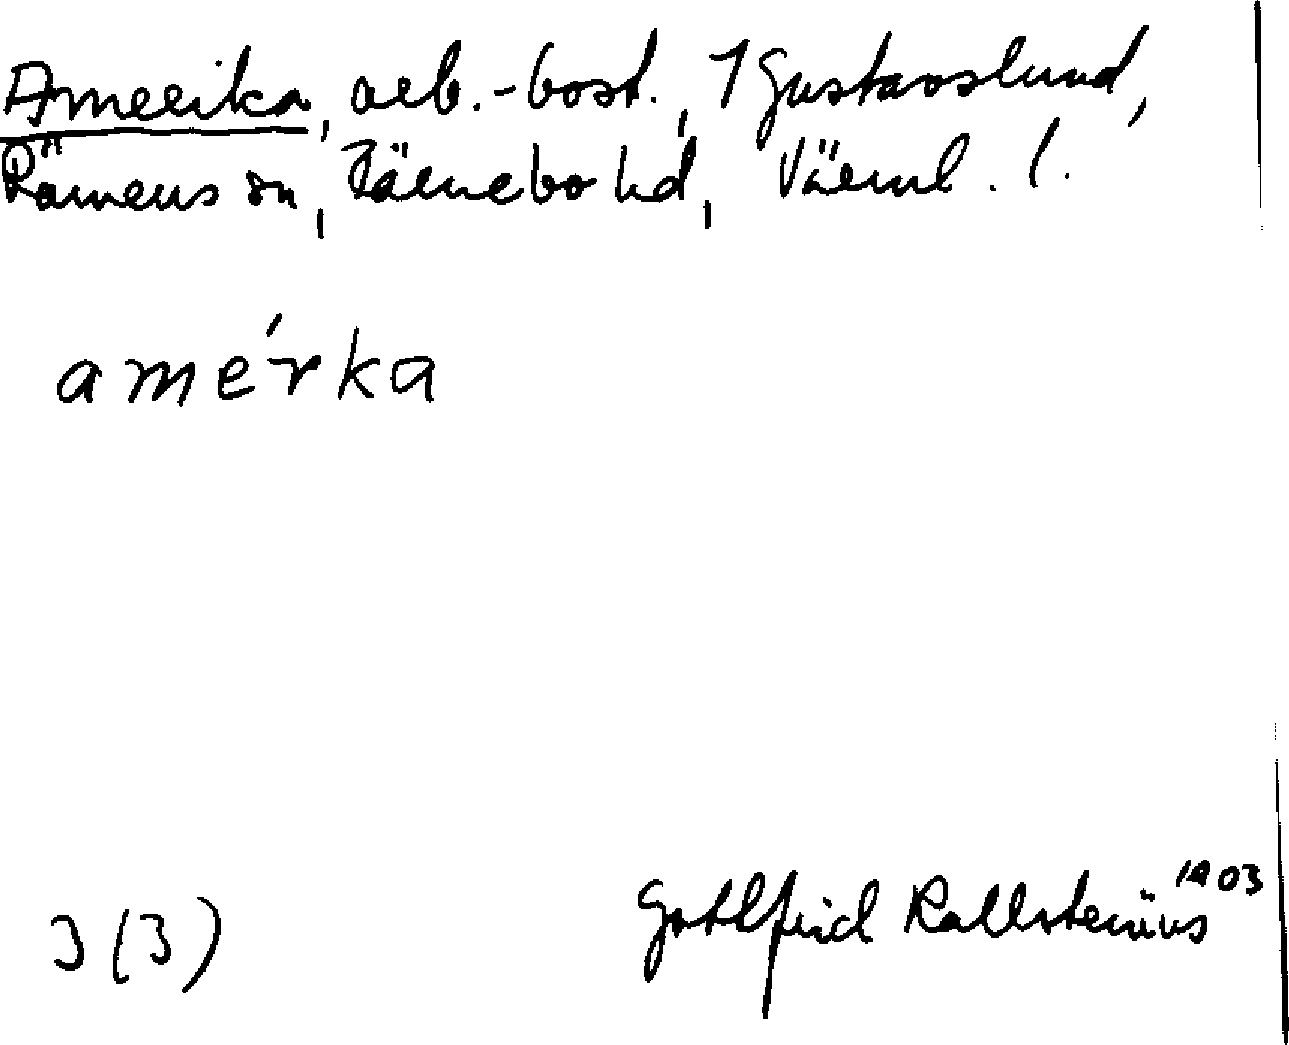 Amerika, arb.-bost., 1 Gustavslund,
Rämens sn, Färnebo hd, Värml. l.
amérka
3 (3)
Gottfrid Kallstenius 1903